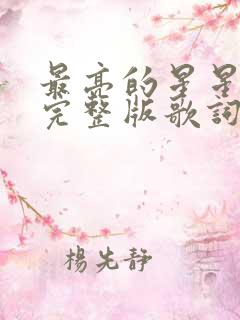 最亮的星星
完整版歌詞
楊先靜